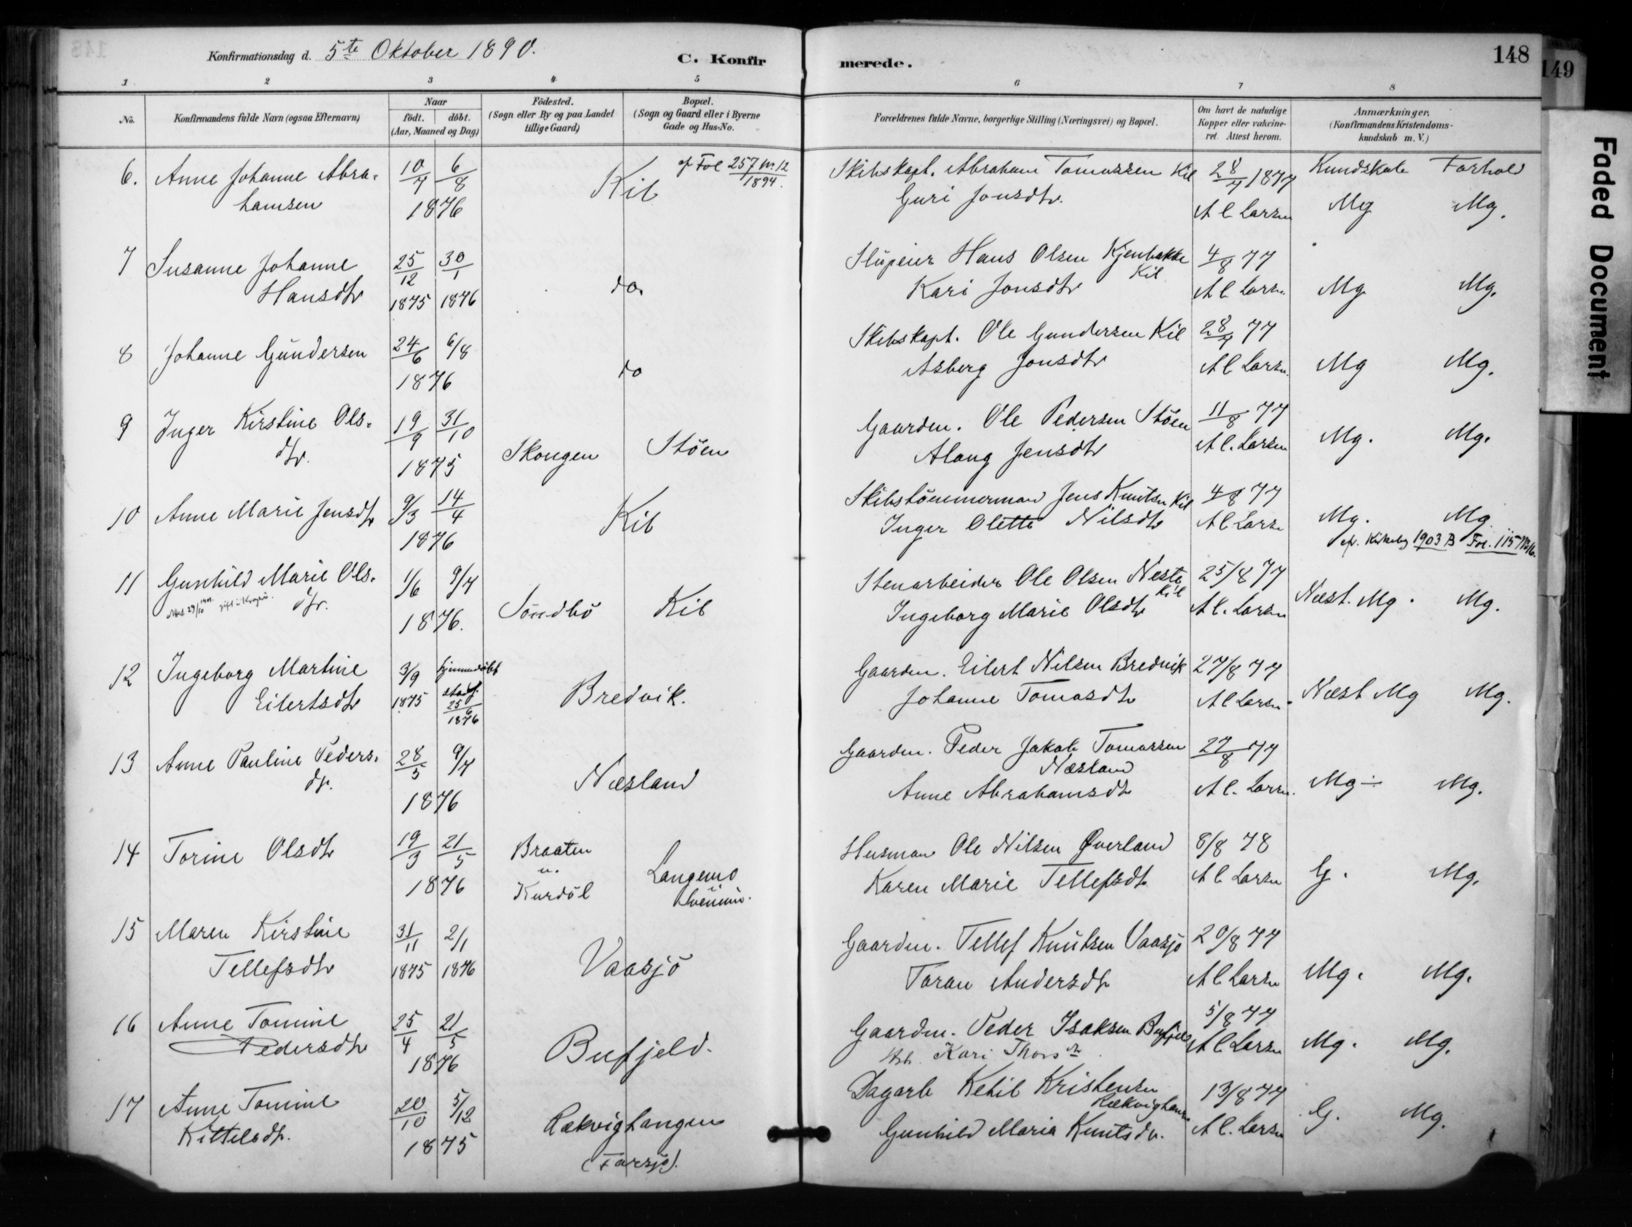 Konfirmationsdag d. 5te Oktober 1890.
C. Konfir merede.
148
149
Faded Document
1 2 3 4 5 6 7 8
No.
Konfirmandens fulde Navn (ogsaa Efternavn)
Naar
født. døbt.
(Aar, Maaned og Dag)
Fødested.
(Sogn eller By og paa Landet
tillige Gaard)
Bopæl.
(Sogn og Gaard eller i Byerne
Gade og Hus-No.
Forældrenes fulde Navne, borgerlige Stilling (Næringsvei) og Bopæl.
Om havt de naturlige
Kopper eller vakcine-
ret. Attest herom.
Anmærkninger.
(Konfirmandens Kristendoms-
kundskab m. V.)
6. Anne Johanne Abra- 10/7 6/8 Kil cf Fol 257 nr 12/1894. Skibskapt. Abraham Tomassen Kil 28/7 1877 Kundskab Forhold
hamsen 1876 Guri Jonsdtr. A C Larsen Mg Mg.
7 Susanne Johanne 25/12 30/1 do. Slupeier Hans Olsen Kjenbakke 4/8 77
Kil
Hansdtr 1875 1876 Kari Jonsdtr A C Larsn Mg Mg.
8 Johanne Gundersen 24/6 6/8 do Skibskapt. Ole Gundersen Kil 28/7 77
1876 Asberg Jonsdtr A C Larsn. Mg Mg.
9 Inger Kirstine Ols- 19/9 31/10 Skongen Støen Gaardm. Ole Pedersen Støen 11/8 77
dtr. 1875 Alaug Jensdtr A C. Larsen Mg. Mg.
10 Anne Marie Jensdtr 9/3 14/4 Kil Skibstømmermand Jens Knutsn Kil 4/8 77
1876 Inger Olette Nilsdtr A C Larsn Mg. Mg.
cf. Kirkebog 1903 B Fol. 115
11 Gunhild Marie Ols- 1/6 9/7 Søndbø Kil Stenarbeider Ole Olsen Neste 25/8 77
Kil
dtr. 1876. Ingeborg Marie Olsdtr A C. Larsn Næst. Mg. Mg.
12 Ingeborg Martine 3/9 hjemmedøbt Bredvik. Gaardm. Eilert Nilsen Bredvik 27/8 77
Eilertsdtr 1875 stadf. 25/6 1876 Johanne Tomasdtr A C Larsn Næst Mg Mg.
13 Anne Pauline Peders- 28/5 9/7 Næsland Gaardm. Peder Jakob Tomassen 27/8 77
Næsland
dtr. 1876 Anne Abrahamsdtr A C. Larsn. Mg Mg.
14 Torine Olsdtr 19/3 21/5 Braaten Langemo Husman Ole Nilsen Øverland 8/8 78
u.
1876 Kurdøl Karen Marie Tellefsdtr A C Larsn G. Mg.
15 Maren Kirstine 31/11 2/1 Vaasjø Gaardm. Tellef Knutsen Vaasjø 20/8 77
Tellefsdtr 1875 1876 Toran Andersdtr A C Larsn Mg. Mg.
16 Anne Tomine 25/4 21/5 Bufjeld. Gaardm. Peder Isaksen Bufjeld 5/8 77
Pedersdtr 1876 Kari Thorsdtr A C Larsn Mg. Mg.
17 Anne Tomine 20/10 5/12 Rækvightangen Dagarb Ketil Kristensn 13/8 77
Kittelsdtr. 1875 (Farsjø). Gunhild Maria Knutsdtr. A C. Larsn G. Mg.